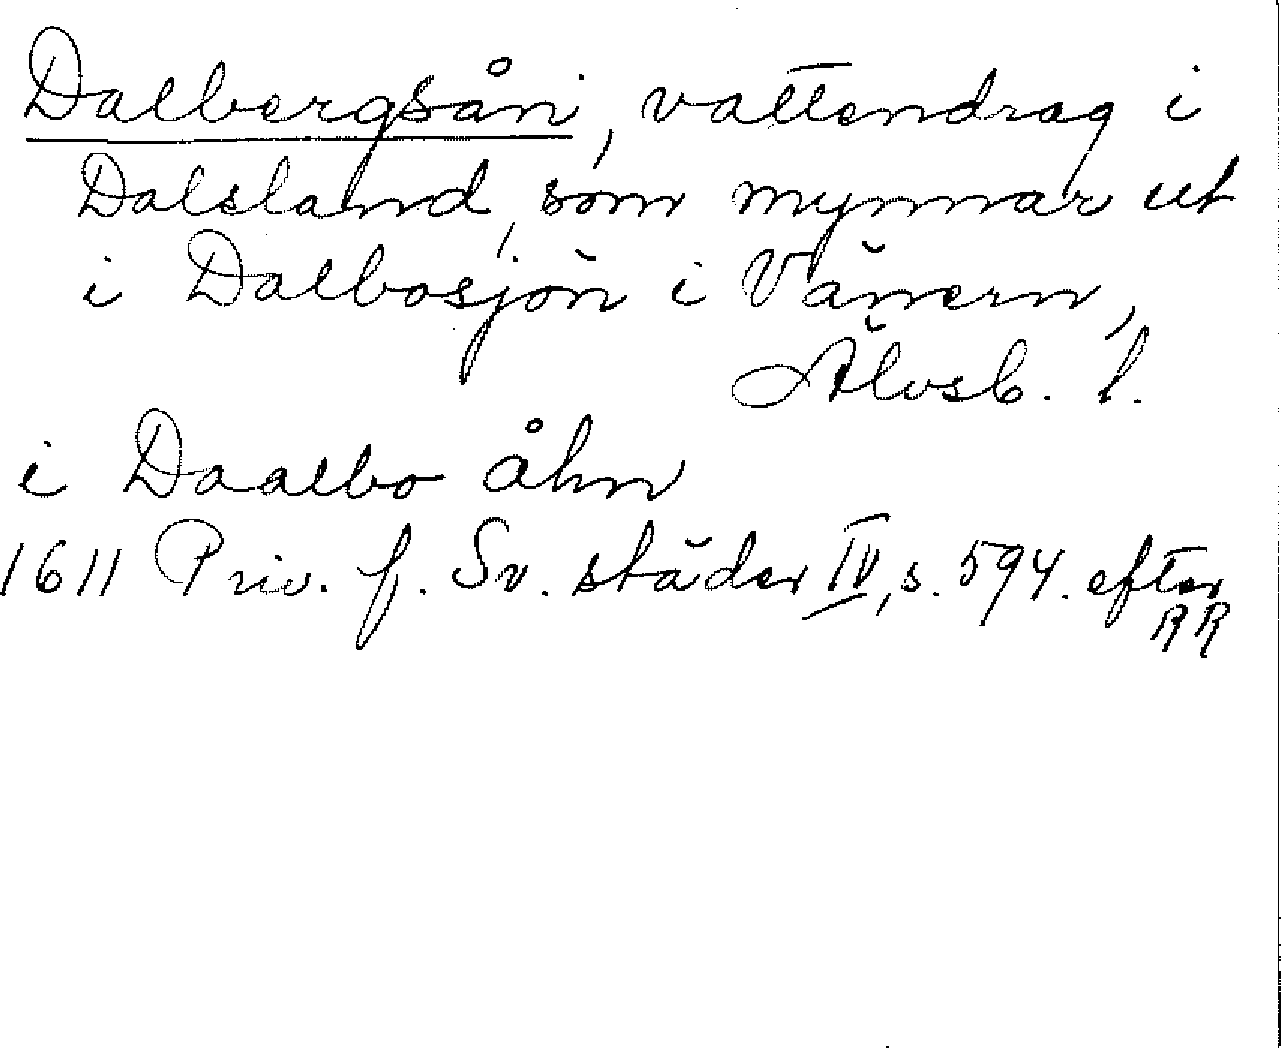 Dalbergsån, vattendrag i
Dalsland, som mynnar ut
i Dalbosjön i Vänern,
Älvsb. l.
i Daalbo åhn
1611 Priv. f. Sv. städer IV, s. 594. efter
RR